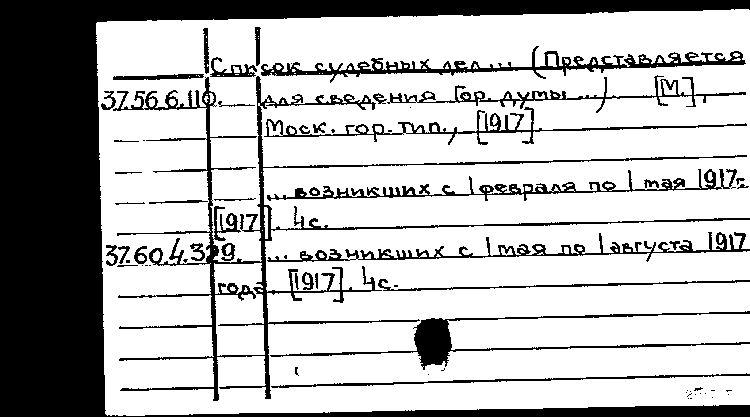 Список судебных дел... (Представляется
37.56.6.110. для сведения Гор. думы ...) [М.],
Моск. гор. тип., [1917].
... возникших с 1 февраля по 1 мая 1917г.
[1917]. 4с.
37.60.4.329. ... возникших с 1 мая по 1 августа 1917
года. [1917]. 4с.